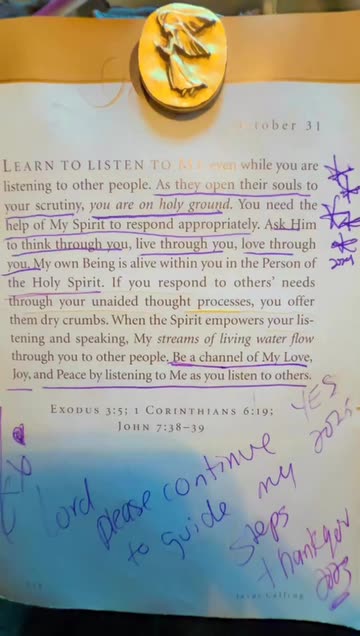 October 31
LEARN TO LISTEN TO ME even while you are
listening to other people. As they open their souls to
your scrutiny, you are on holy ground. You need the
help of My Spirit to respond appropriately. Ask Him
to think through you, live through you, love through
you. My own Being is alive within you in the Person of
the Holy Spirit. If you respond to others' needs
through your unaided thought processes, you offer
them dry crumbs. When the Spirit empowers your lis-
tening and speaking, My streams of living water flow
through you to other people. Be a channel of My Love,
Joy, and Peace by listening to Me as you listen to others.
EXODUS 3:5; 1 CORINTHIANS 6:19;
JOHN 7:38–39
YES
2025
Lord
please continue
to guide my
steps
Jesus Calling